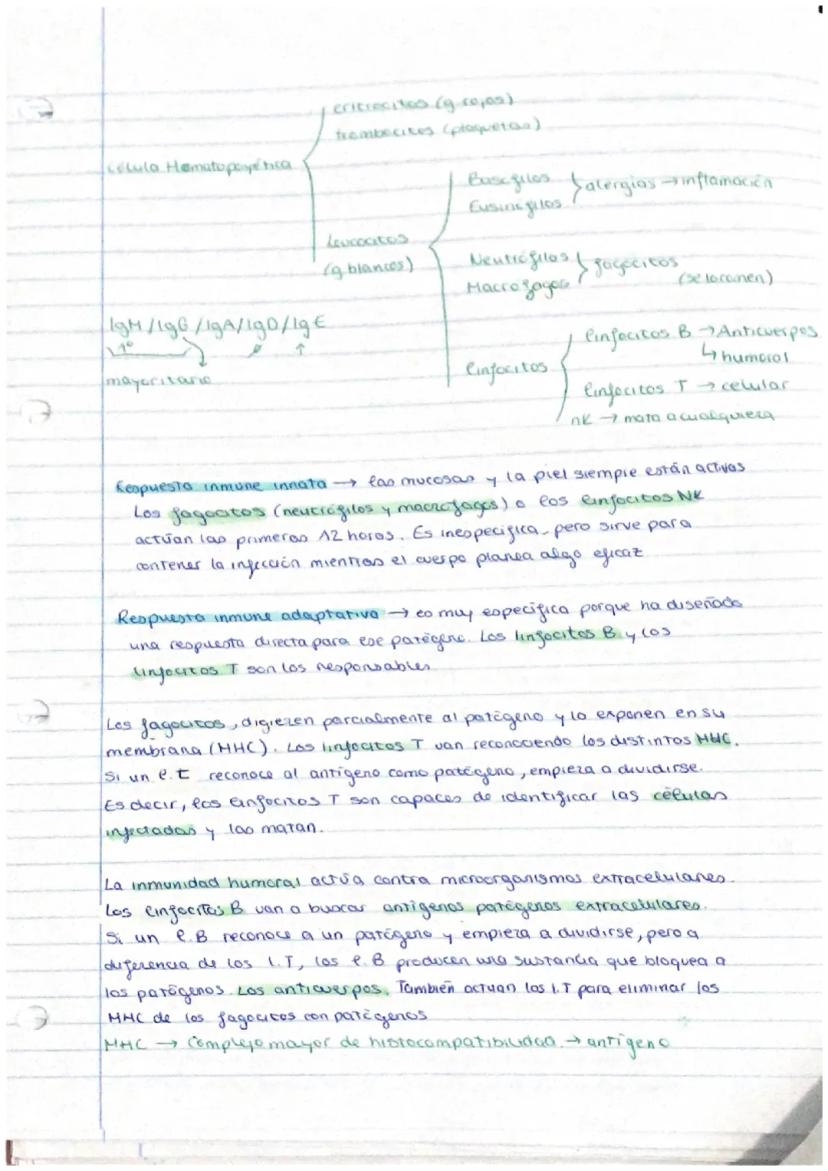 eritrocitos (g. rojos)
trombocitos (plaquetas)
célula Hematopoyética
Basófilos
Eusinófilos
alergias → inflamación
Leucocitos
(g. blancos)
Neutrófilos
Macrófagos
fagocitos
(se lo comen)
IgM / IgG / IgA / IgD / IgE
1º
mayoritario
Linfocitos
Linfocitos B → Anticuerpos
↳ humoral
Linfocitos T → celular
nK → mata a cualquiera
Respuesta inmune innata → las mucosas y la piel siempre están activas
Los fagocitos (neutrófilos y macrófagos) o los linfocitos NK
actúan las primeras 12 horas. Es inespecífica, pero sirve para
contener la infección mientras el cuerpo planea algo eficaz
Respuesta inmune adaptativa → es muy específica porque ha diseñado
una respuesta directa para ese patógeno. Los linfocitos B y los
linfocitos T son los responsables
Los fagocitos, digieren parcialmente al patógeno y lo exponen en su
membrana (MHC). Los linfocitos T van reconociendo los distintos MHC.
Si un l.t reconoce al antígeno como patógeno, empieza a dividirse.
Es decir, los linfocitos T son capaces de identificar las células
infectadas y las matan.
La inmunidad humoral actúa contra microorganismos extracelulares.
Los linfocitos B van a buscar antígenos patógenos extracelulares.
Si un l.B reconoce a un patógeno y empieza a dividirse, pero a
diferencia de los l.T, los l.B producen una sustancia que bloquea a
los patógenos. Los anticuerpos. También actuan los l.T para eliminar los
MHC de los fagocitos con patógenos
MHC → Complejo mayor de histocompatibilidad. → antígeno